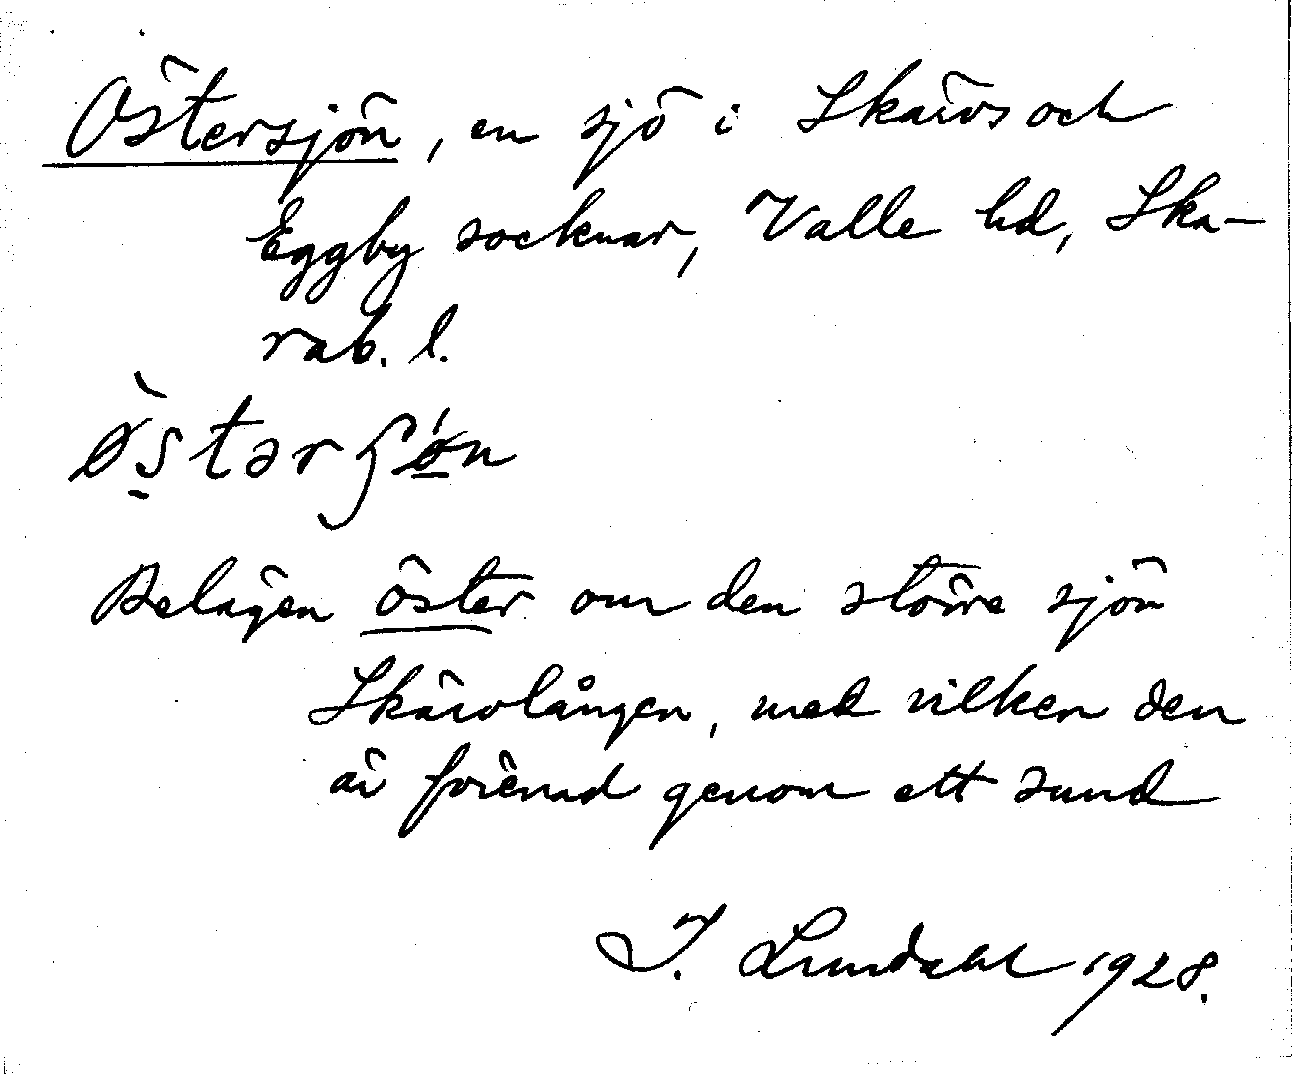 Östersjön, en sjö i Skärvs och
Eggby socknar, Valle hd, Ska-
rab. l.
Belägen öster om den större sjön
Skärvlången, med vilken den
är förenad genom ett sund
I. Lundahl 1928.